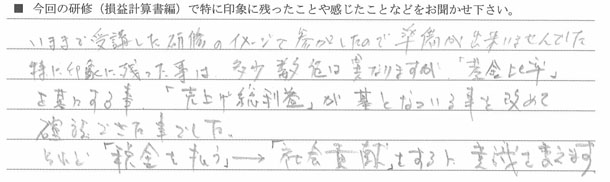 ■ 今回の研修（損益計算書編）で特に印象に残ったことや感じたことなどをお聞かせ下さい。
いままで受講した研修のイメージで参加したので準備が出来いませんでした
特に印象に残った事は 多少数値は異なりますが「黄金比率」
を算する事.「売上げ総利益」が基となっている事を改めて
確認できた事でした。
それと「税金を払う」→「社会貢献」をするに意識を変えます